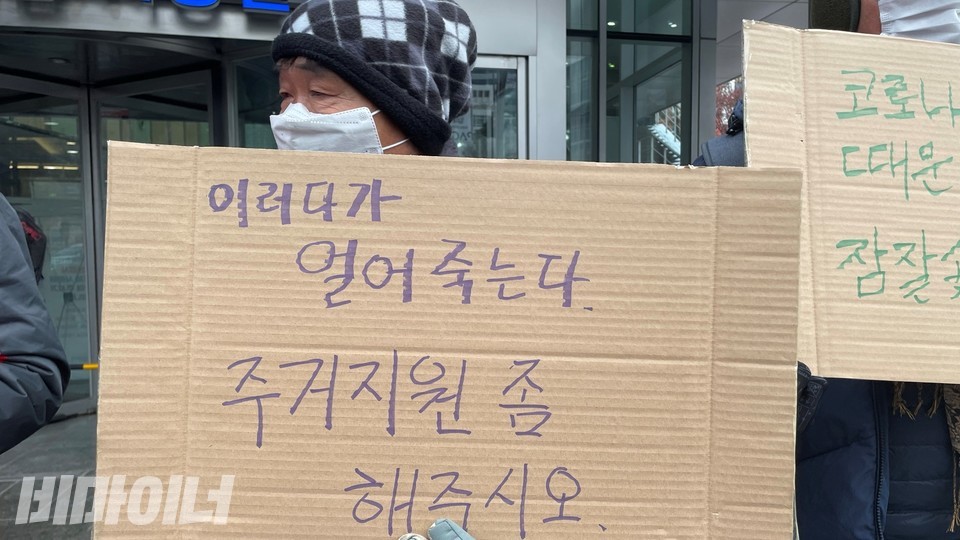 이러다가
얼어죽는다.
주거지원 좀
해주시오.
코로나
때문
잠잘
비마이너